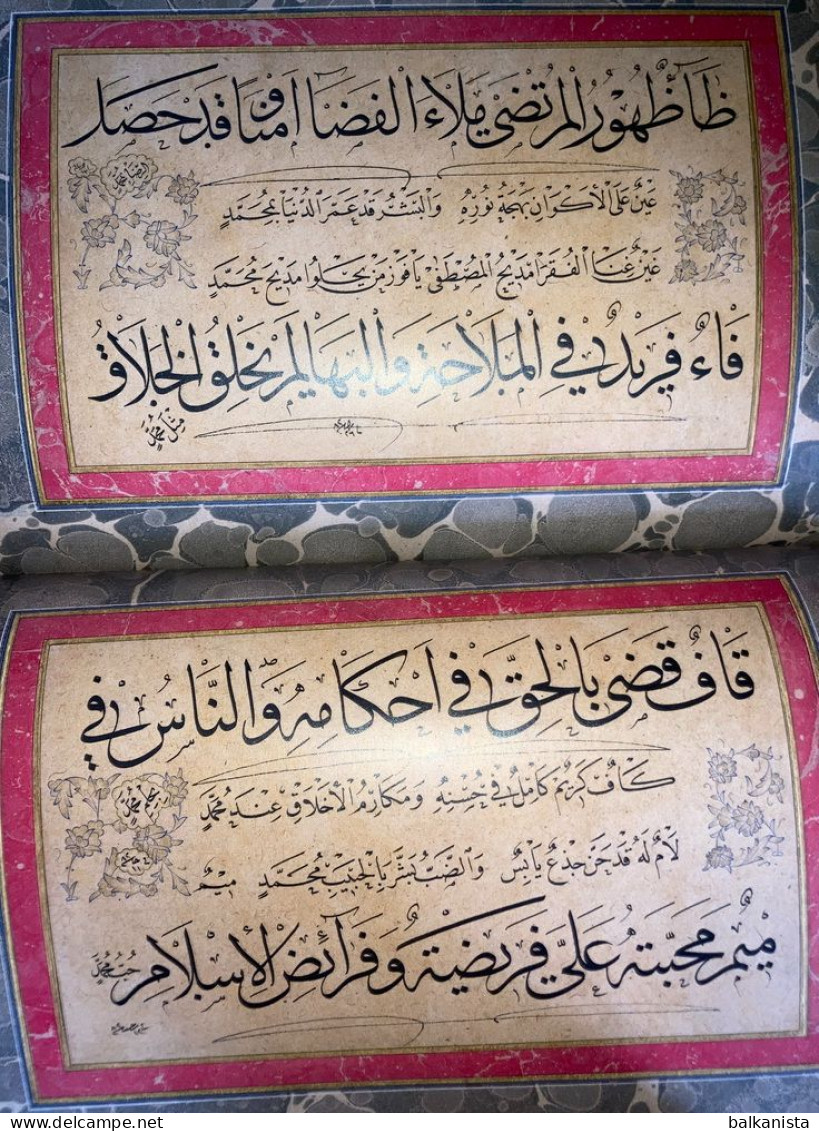 ظَآءُ ظُهُورُ الْمُرْتَضٰى مَلَاءَ الْفَضَآ اٰمَنَّا وَقَدْ حَصَلَ
عَيْنٌ عَلَى الْأَكْوَانِ بَهْجَةُ نُورُهُ وَالْبَشَرُ قَدْ عَمَّرَ الدُّنْيَا بِمُحَمَّدٍ
غَيْنٌ غِنَا الْفُقَرَا مَدِيحُ الْمُصْطَفٰى يَا فَوْزَ مَنْ يَحْلُوا مَدِيحَ مُحَمَّدٍ
فَاءٌ فَرِيدٌ فِي الْمَلَاحَةِ وَالْبَهَا لَمْ يَخْلُقِ الْخَلَّاقُ
مِثْلَ مُحَمَّدٍ
قَافٌ قَضٰى بِالْحَقِّ فِي اَحْكَامِهِ وَالنَّاسُ فِي
كَافٌ كَرِيمٌ كَامِلٌ فِي حُسْنِهِ وَمَكَارِمُ الْأَخْلَاقِ عِنْدَ مُحَمَّدٍ
لَامٌ لَهُ قَدْ حَنَّ جِذْعٌ يَابِسٌ وَالضَّبُّ بَشَّرَ بِالْحَبِيبِ مُحَمَّدٍ مِيمٌ
مِيمٌ مَحَبَّتُهُ عَلَيَّ فَرِيضَةٌ وَفَرَائِضُ الْإِسْلَامِ
حُبُّ مُحَمَّدٍ
balkanista